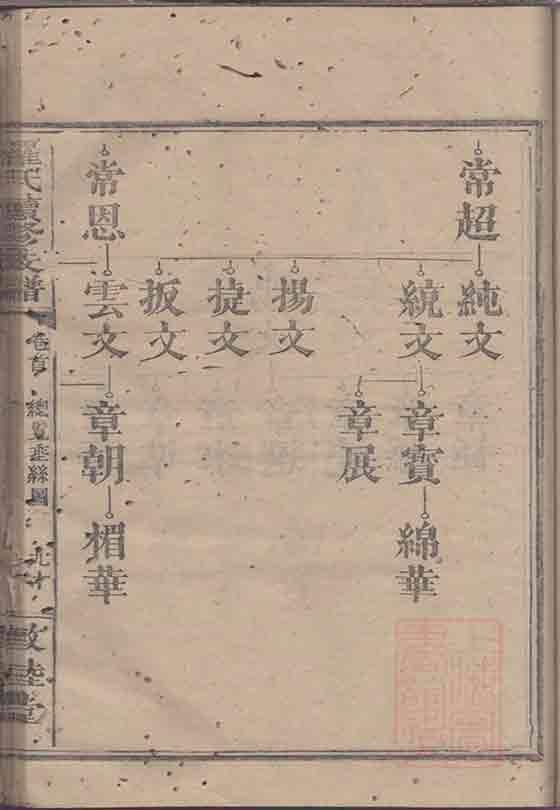 常超
純文
統文
章寶
綿華
章展
揚文
捷文
扳文
常恩
雲文
章朝
楣華
羅氏續修支譜
卷首
總覽垂絲圖
九十
敦睦堂